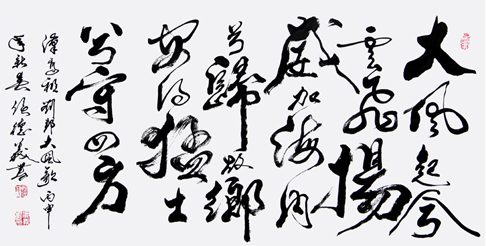 大風起兮
雲飛揚
威加海内
兮歸故鄉
安得猛士
兮守四方
漢高祖劉邦大風歌丙申
年秋